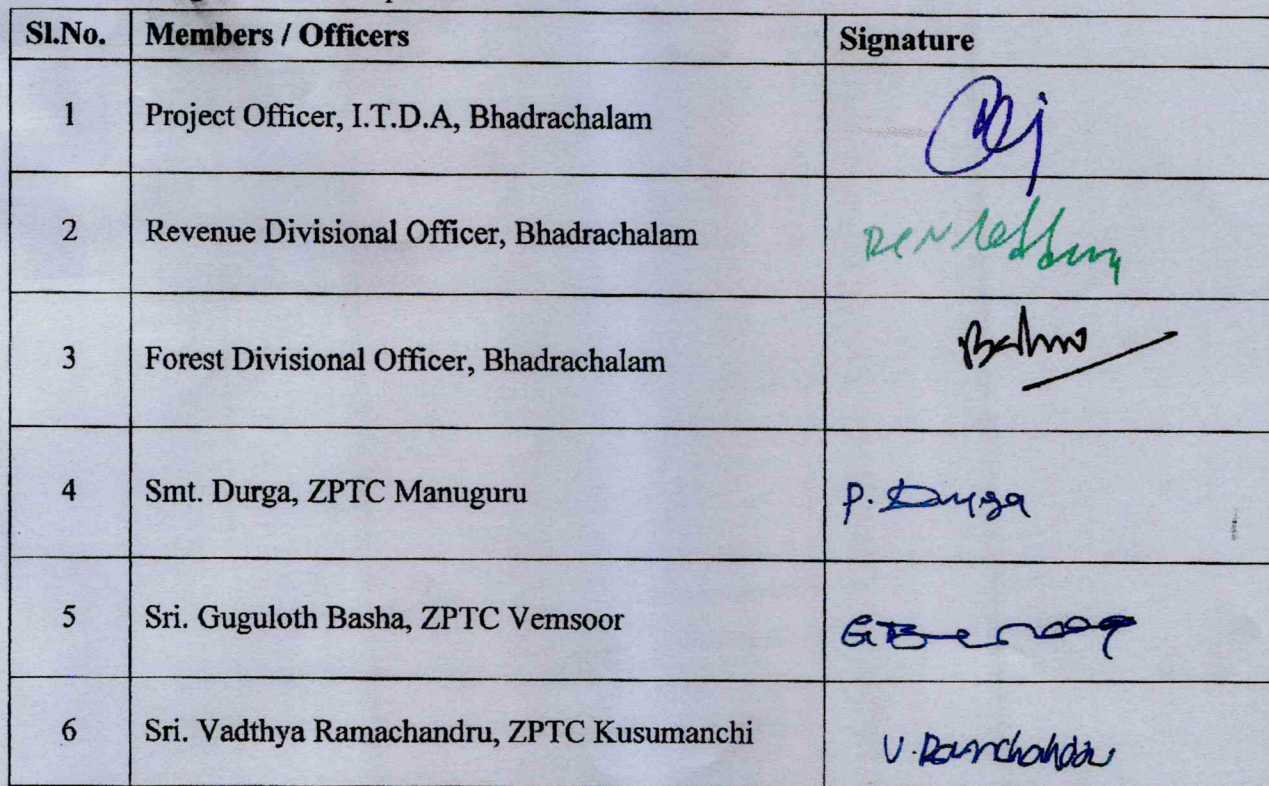 Sl.No. Members / Officers Signature
1 Project Officer, I.T.D.A, Bhadrachalam
2 Revenue Divisional Officer, Bhadrachalam
3 Forest Divisional Officer, Bhadrachalam
4 Smt. Durga, ZPTC Manuguru P. Durga
5 Sri. Guguloth Basha, ZPTC Vemsoor
6 Sri. Vadthya Ramachandru, ZPTC Kusumanchi